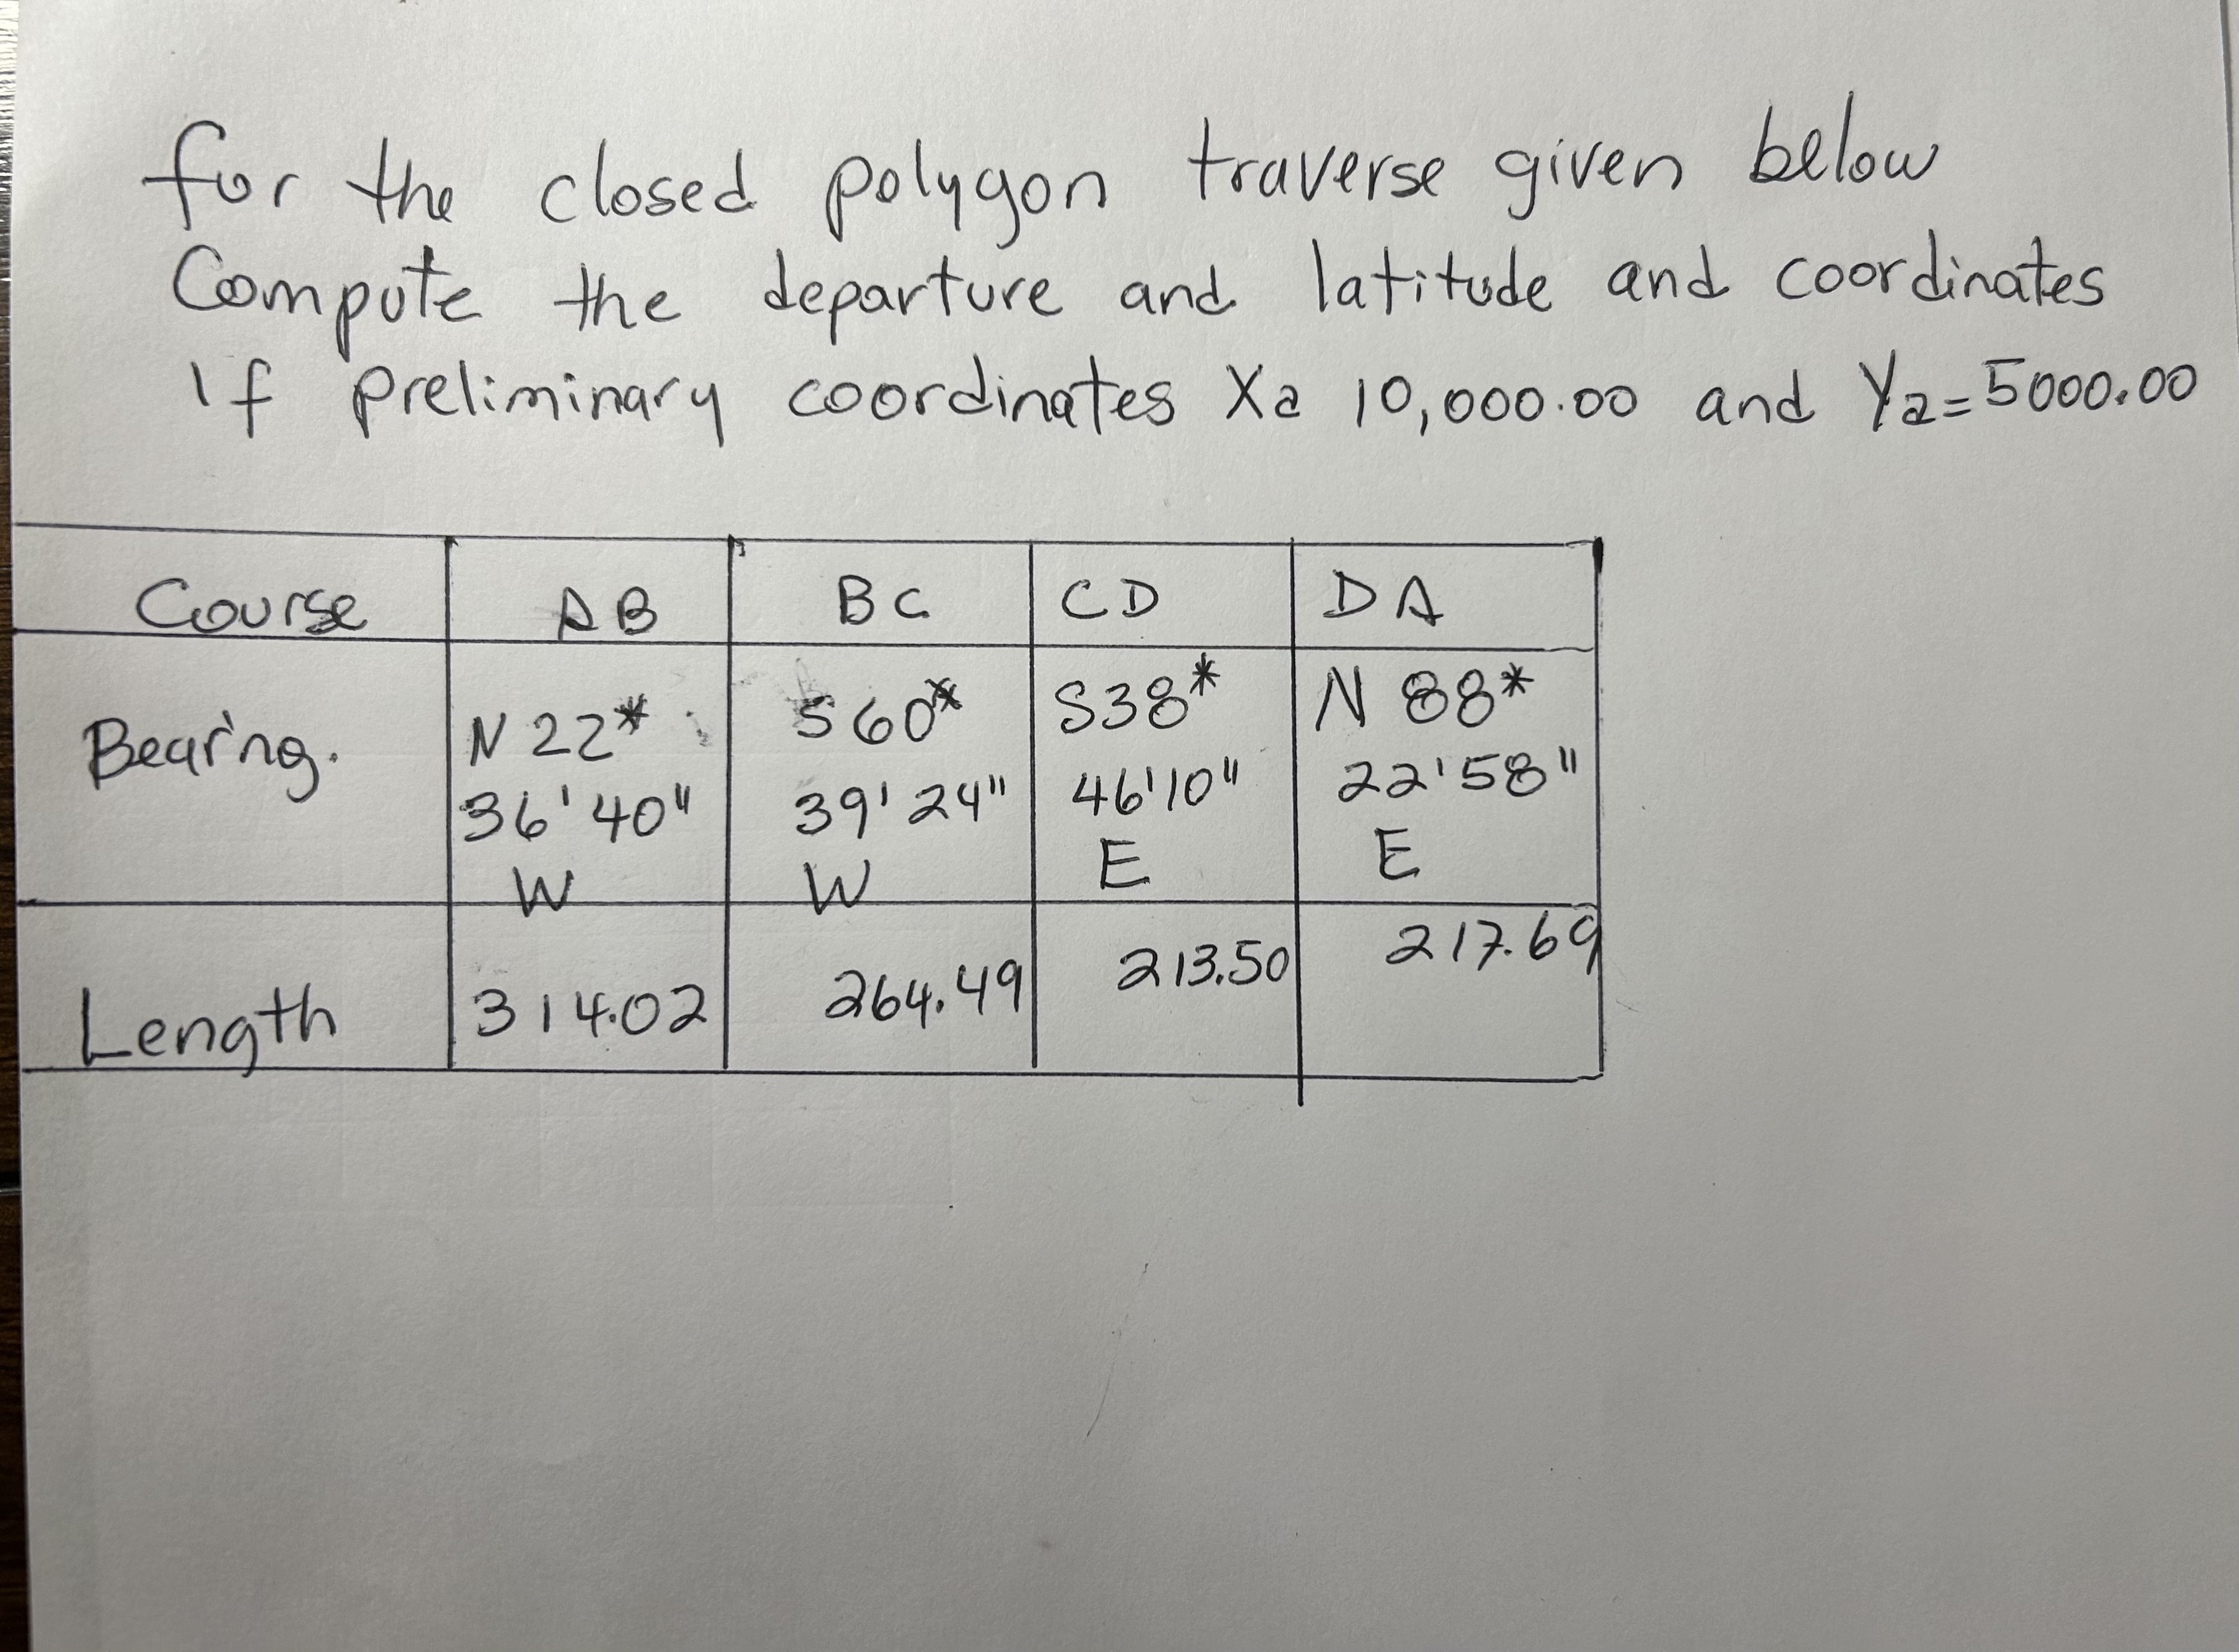 for the closed polygon traverse given below
Compute the departure and latitude and coordinates
If preliminary coordinates Xa 10,000.00 and Ya=5000.00
Course AB BC CD DA
Bearing. N 22* S 60* S38* N 88*
36' 40" 39' 24" 46'10" 22'58"
W W E E
Length 314.02 264.49 213.50 217.69